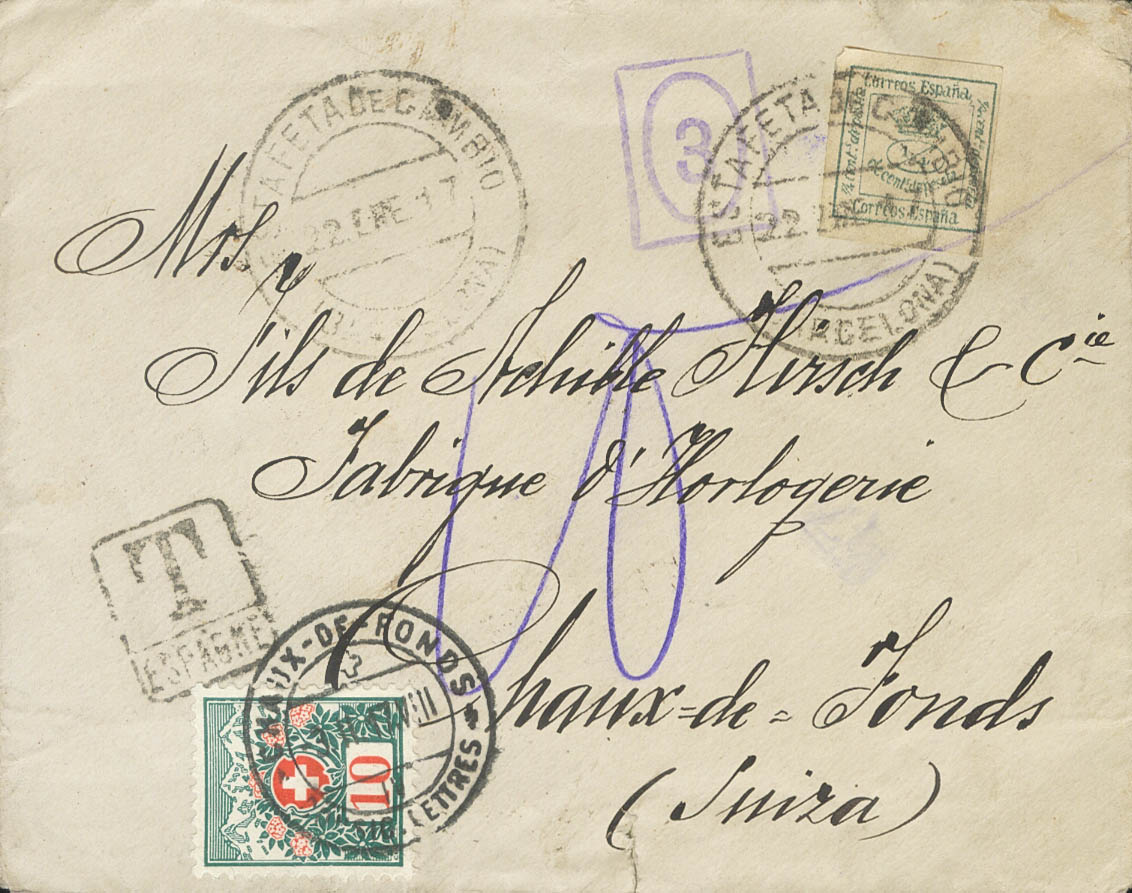 ESTAFETA DE CAMBIO
22 ENE 17
3
ESTAFETA DE CAMBIO
22
(BARCELONA)
Correos España
Correos España
Mrs.
Fils de Achille Hirsch & Cie
Fabrique d'Horlogerie
Chaux-de-Fonds
(Suiza)
10
T
ESPAGNE
CHAUX-DE-FONDS
LETTRES
10